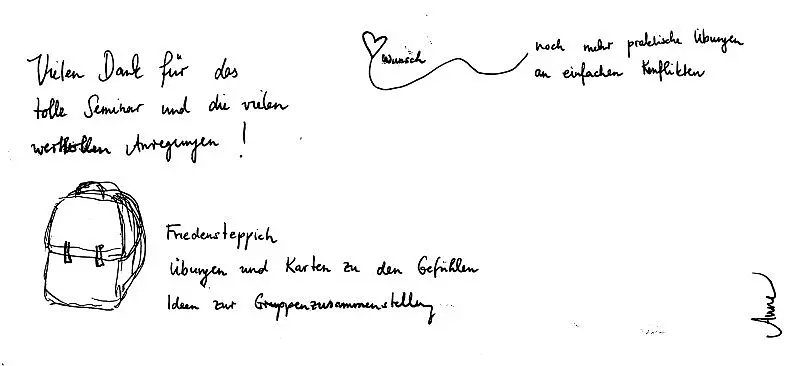 Vielen Dank für das
tolle Seminar und die vielen
wertvollen Anregungen !
Wunsch
noch mehr praktische Übungen
an einfachen Konflikten
Friedensteppich
Übungen und Karten zu den Gefühlen
Ideen zur Gruppenzusammenstellung
Anne